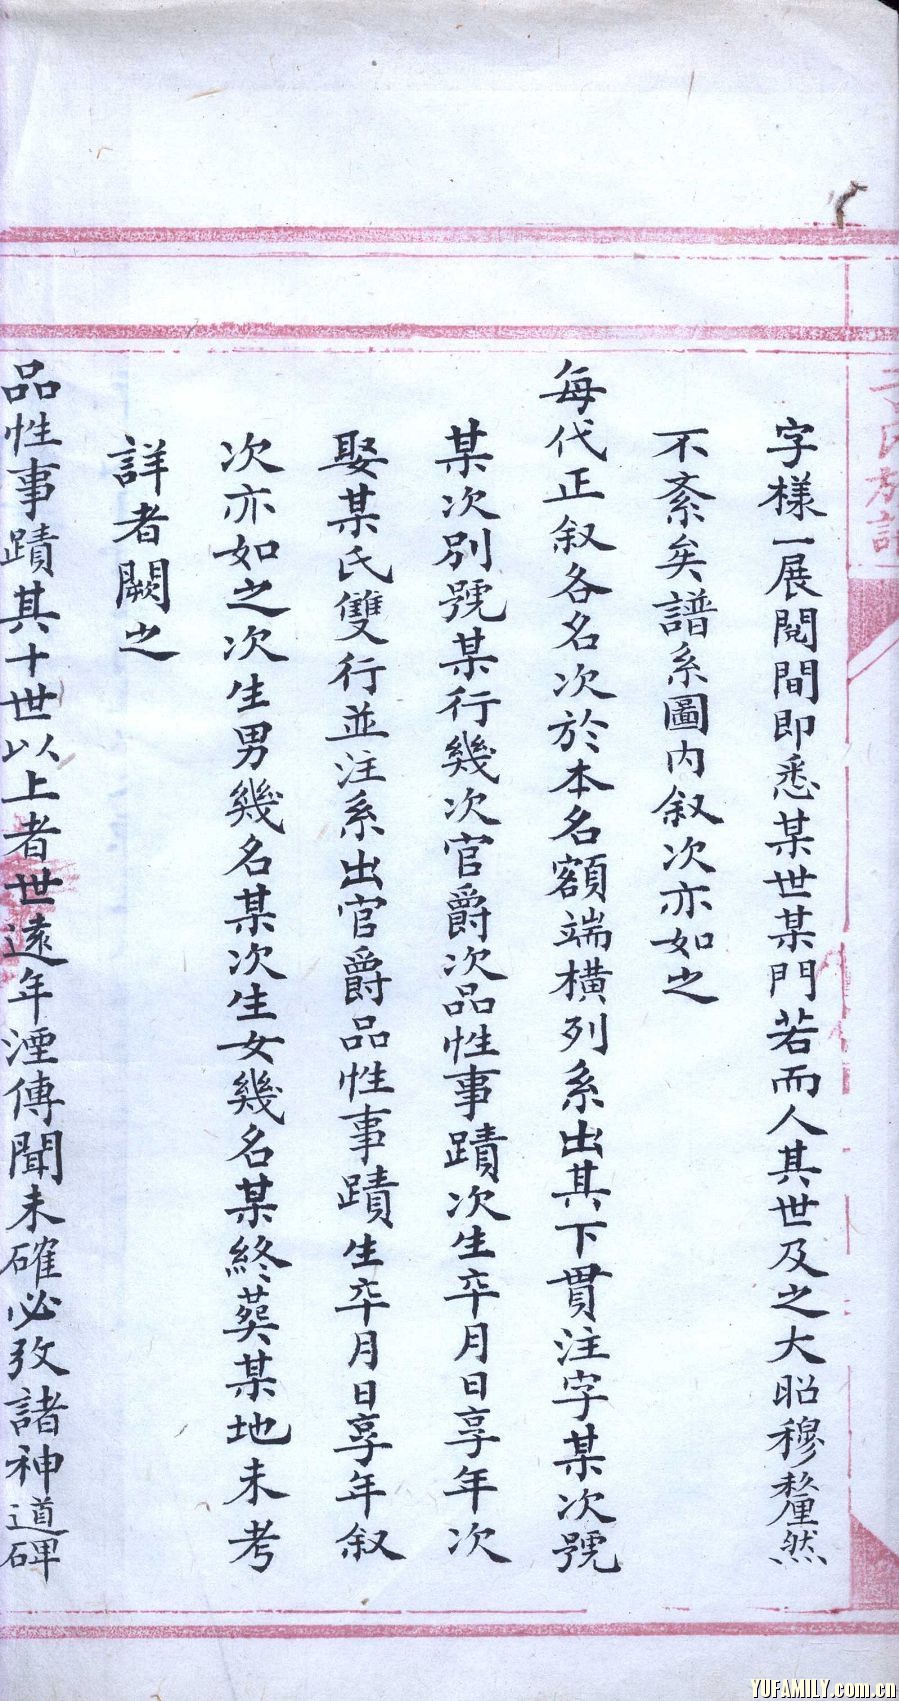 字樣一展閱間即悉某世某門若而人其世及之大昭穆釐然
不紊矣譜系圖內叙次亦如之
每代正叙各名次於本名額端橫列系出其下貫注字某次號
某次別號某行幾次官爵次品性事蹟次生卒月日享年次
娶某氏雙行並注系出官爵品性事蹟生卒月日享年叙
次亦如之次生男幾名某次生女幾名某終葬某地未考
詳者闕之
品性事蹟其十世以上者世遠年湮傳聞未確必攷諸神道碑
YUFAMILY.com.cn